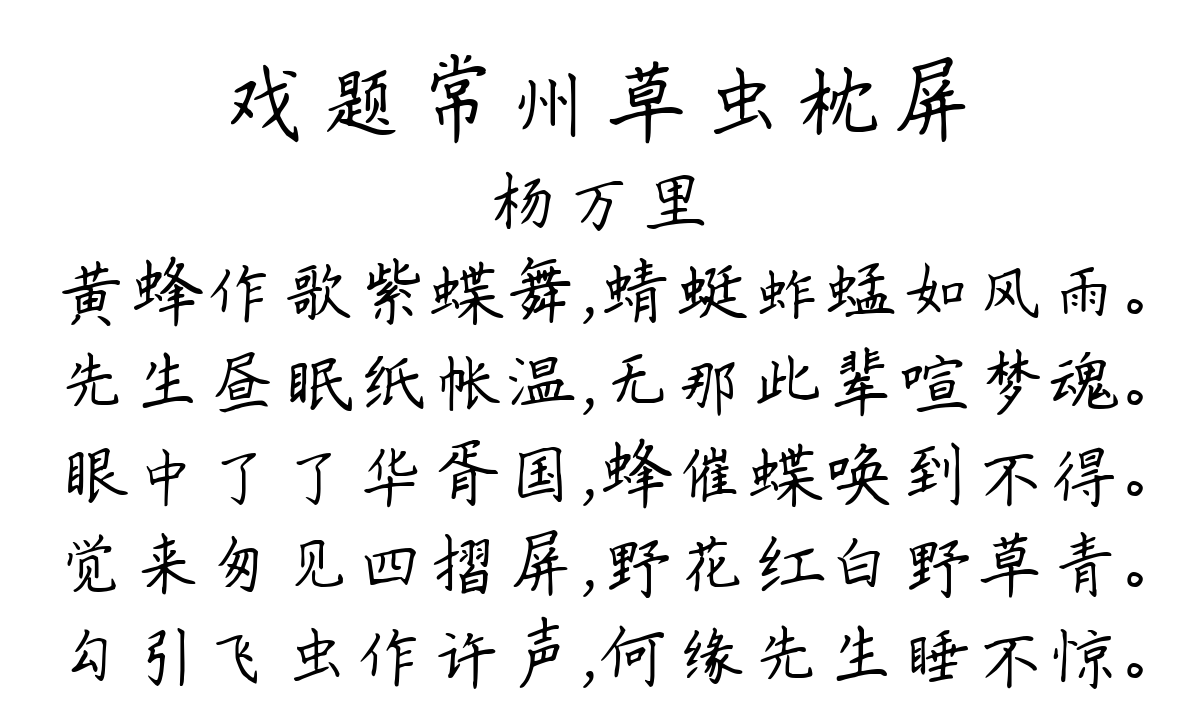 戏题常州草虫枕屏
杨万里
黄蜂作歌紫蝶舞,蜻蜓蚱蜢如风雨。
先生昼眠纸帐温,无那此辈喧梦魂。
眼中了了华胥国,蜂催蝶唤到不得。
觉来匆见四摺屏,野花红白野草青。
勾引飞虫作许声,何缘先生睡不惊。